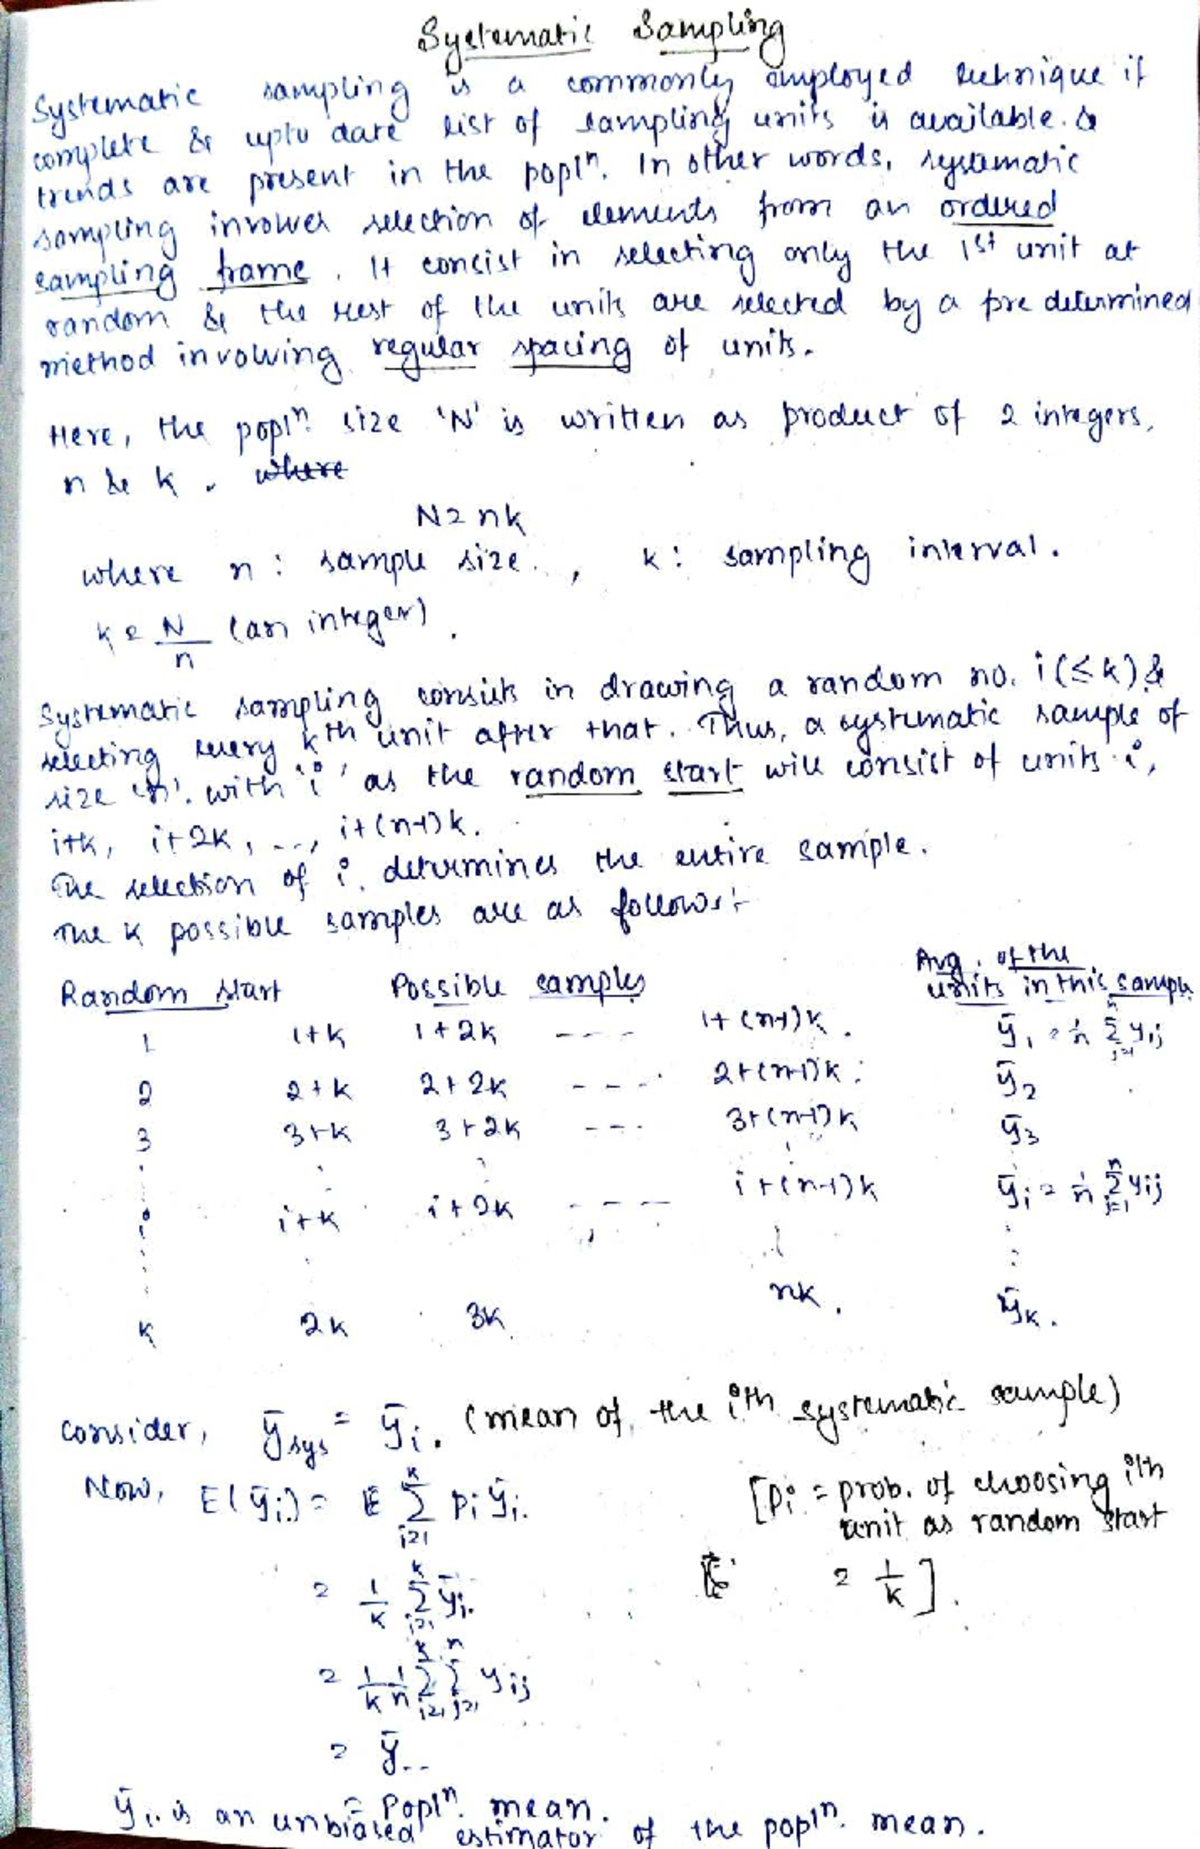 Systematic Sampling
Systematic sampling is a commonly employed technique if
complete & upto date list of sampling units is available. &
trends are present in the popl^n. In other words, systematic
sampling involves selection of elements from an ordered
sampling frame. It consist in selecting only the 1^st unit at
random & the rest of the units are selected by a pre determined
method involving regular spacing of units.
Here, the popl^n. size 'N' is written as product of 2 integers,
n & k. where
N = nk
where n : sample size. , k : sampling interval.
k = N/n (an integer).
Systematic sampling consists in drawing a random no. i (≤ k) &
selecting every k^th unit after that. Thus, a systematic sample of
size 'n'. with 'i' as the random start will consist of units i,
i+k, i+2k, ..., i+(n-1)k.
The selection of i. determines the entire sample.
The k possible samples are as follows:-
Random start Possible samples Avg. of the units in this sample
1 1+k 1+2k ---- 1+(n-1)k. ȳ₁. = 1/n Σ_{j=1}^{n} y₁j
2 2+k 2+2k ---- 2+(n-1)k. ȳ₂
3 3+k 3+2k ---- 3+(n-1)k ȳ₃
i i+k i+2k ---- i+(n-1)k ȳi = 1/n Σ_{j=1}^{n} yij
k 2k 3k nk. ȳk.
Consider, ȳsys = ȳi. (mean of the i^th systematic sample)
Now, E(ȳi.) = E Σ_{i=1}^{k} pi ȳi. [pi = prob. of choosing i^th
unit as random start
= 1/k Σ_{i=1}^{k} ȳi. = 1/k].
= 1/k 1/n Σ_{i=1}^{k} Σ_{j=1}^{n} yij
= ȳ..
= Popl^n. mean.
ȳi. is an unbiased estimator of the popl^n. mean.